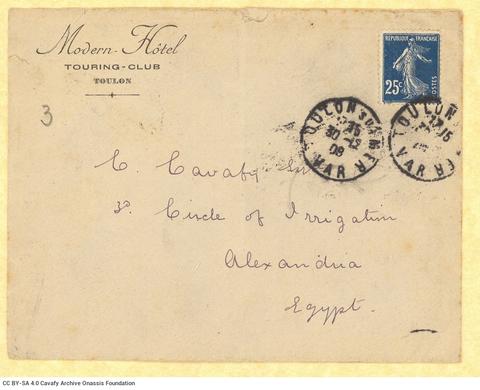 Modern-Hôtel
TOURING-CLUB
TOULON
3
REPUBLIQUE FRANÇAISE
25c
POSTES
TOULON
15
30-12
08
VAR
TOULON
12 15
VAR
C. Cavafy
3º Circle of Irrigation
Alexandria
Egypt.
CC BY-SA 4.0 Cavafy Archive Onassis Foundation